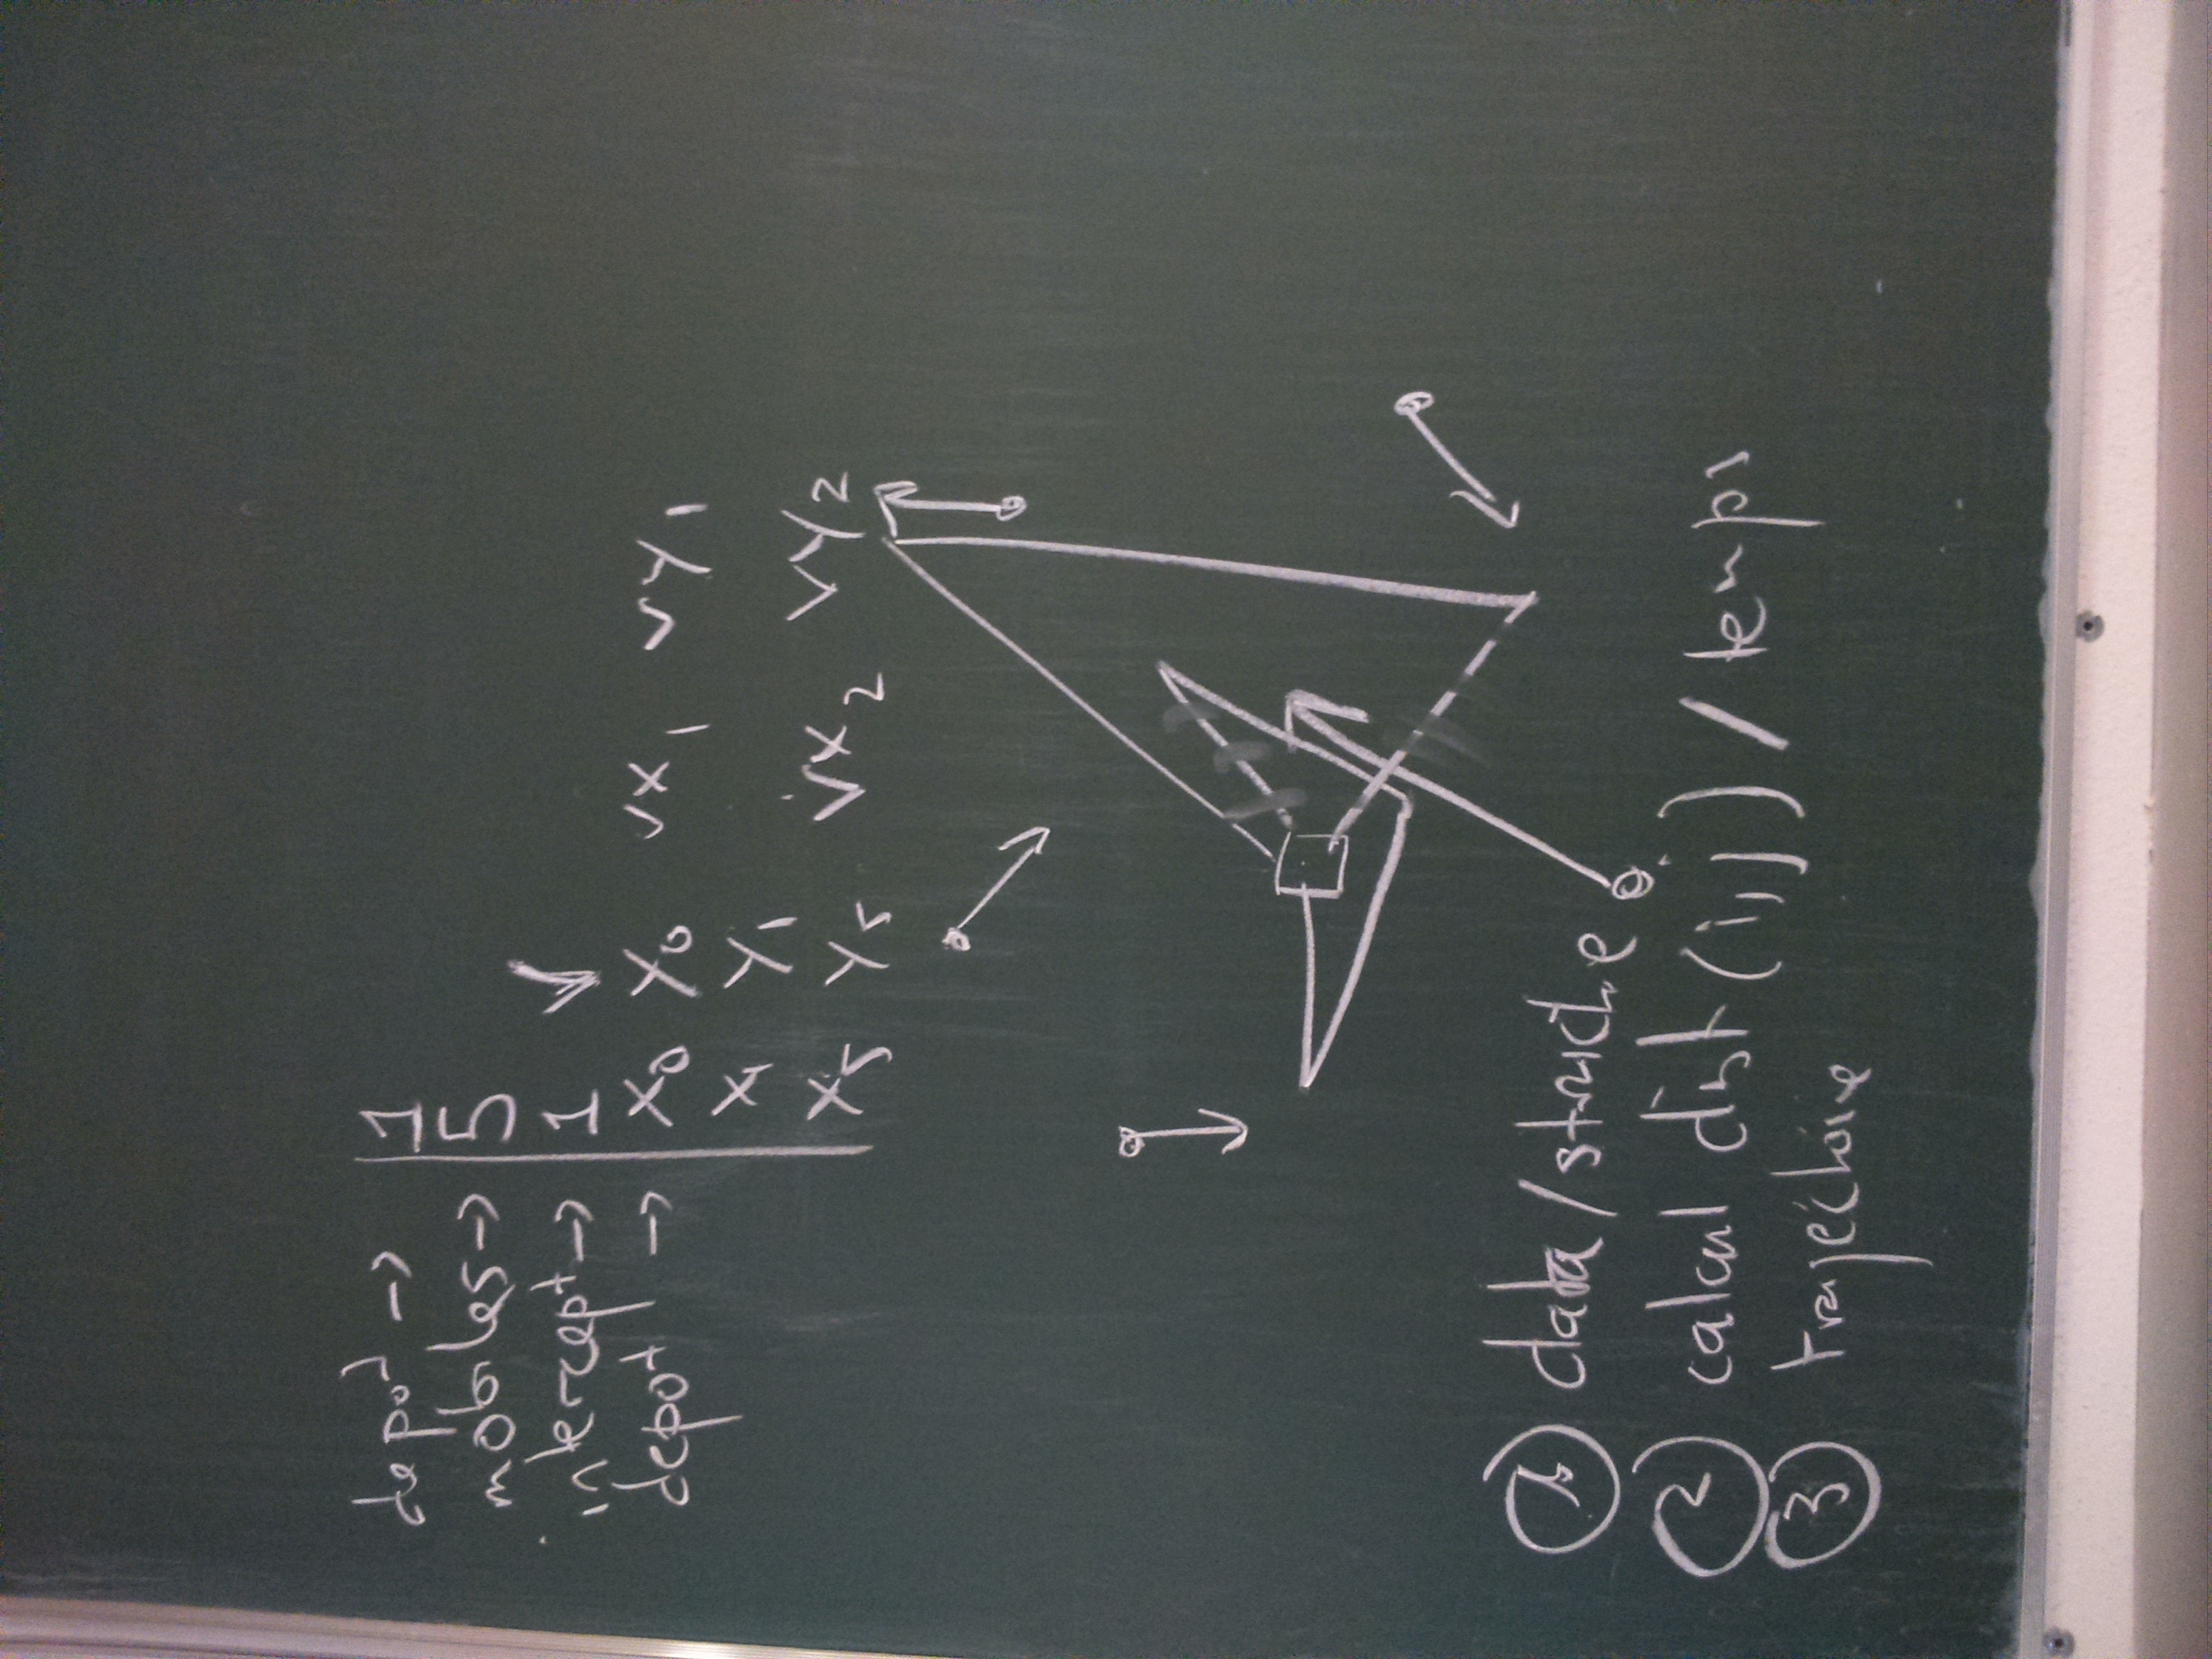 depot -> 1
mobiles -> 5
intercept -> 1 V
depot -> x0 y0 vx1 vy1
x1 y1
x5 y5 vx2 vy2
1 data/structure
2 calcul dist(i,j) / temps
3 trajectoire